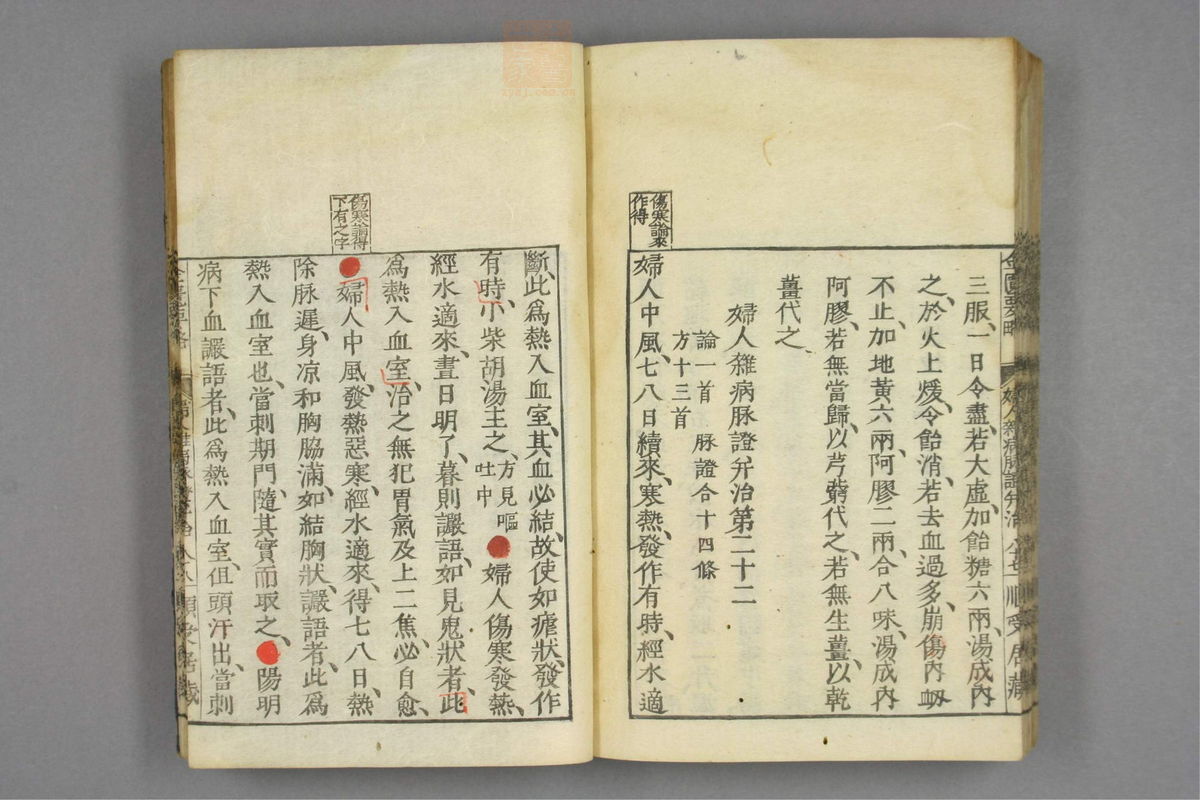 三服、一日令盡、若大虛加飴糖六兩、湯成內
之、於火上煖、令飴消、若去血過多、崩傷內衂
不止、加地黃六兩、阿膠二兩、合八味、湯成內
阿膠、若無當歸、以芎藭代之、若無生薑、以乾
薑代之、
婦人雜病脉證弁治第二十二
論一首　脉證合十四條
方十三首
傷寒論來
作得
婦人中風、七八日續來、寒熱、發作有時、經水適
斷、此爲熱入血室、其血必結、故使如瘧狀、發作
有時、小柴胡湯主之、方見嘔吐中●婦人傷寒發熱、
經水適來、晝日明了、暮則讝語、如見鬼狀者、此
爲熱入血室、治之無犯胃氣及上二焦、必自愈、
傷寒論得
下有之字
●婦人中風、發熱惡寒、經水適來、得七八日、熱
除脉遲、身凉和胸脇滿、如結胸狀、讝語者、此爲
熱入血室也、當刺期門、隨其實而取之、●陽明
病下血讝語者、此爲熱入血室、但頭汗出、當刺